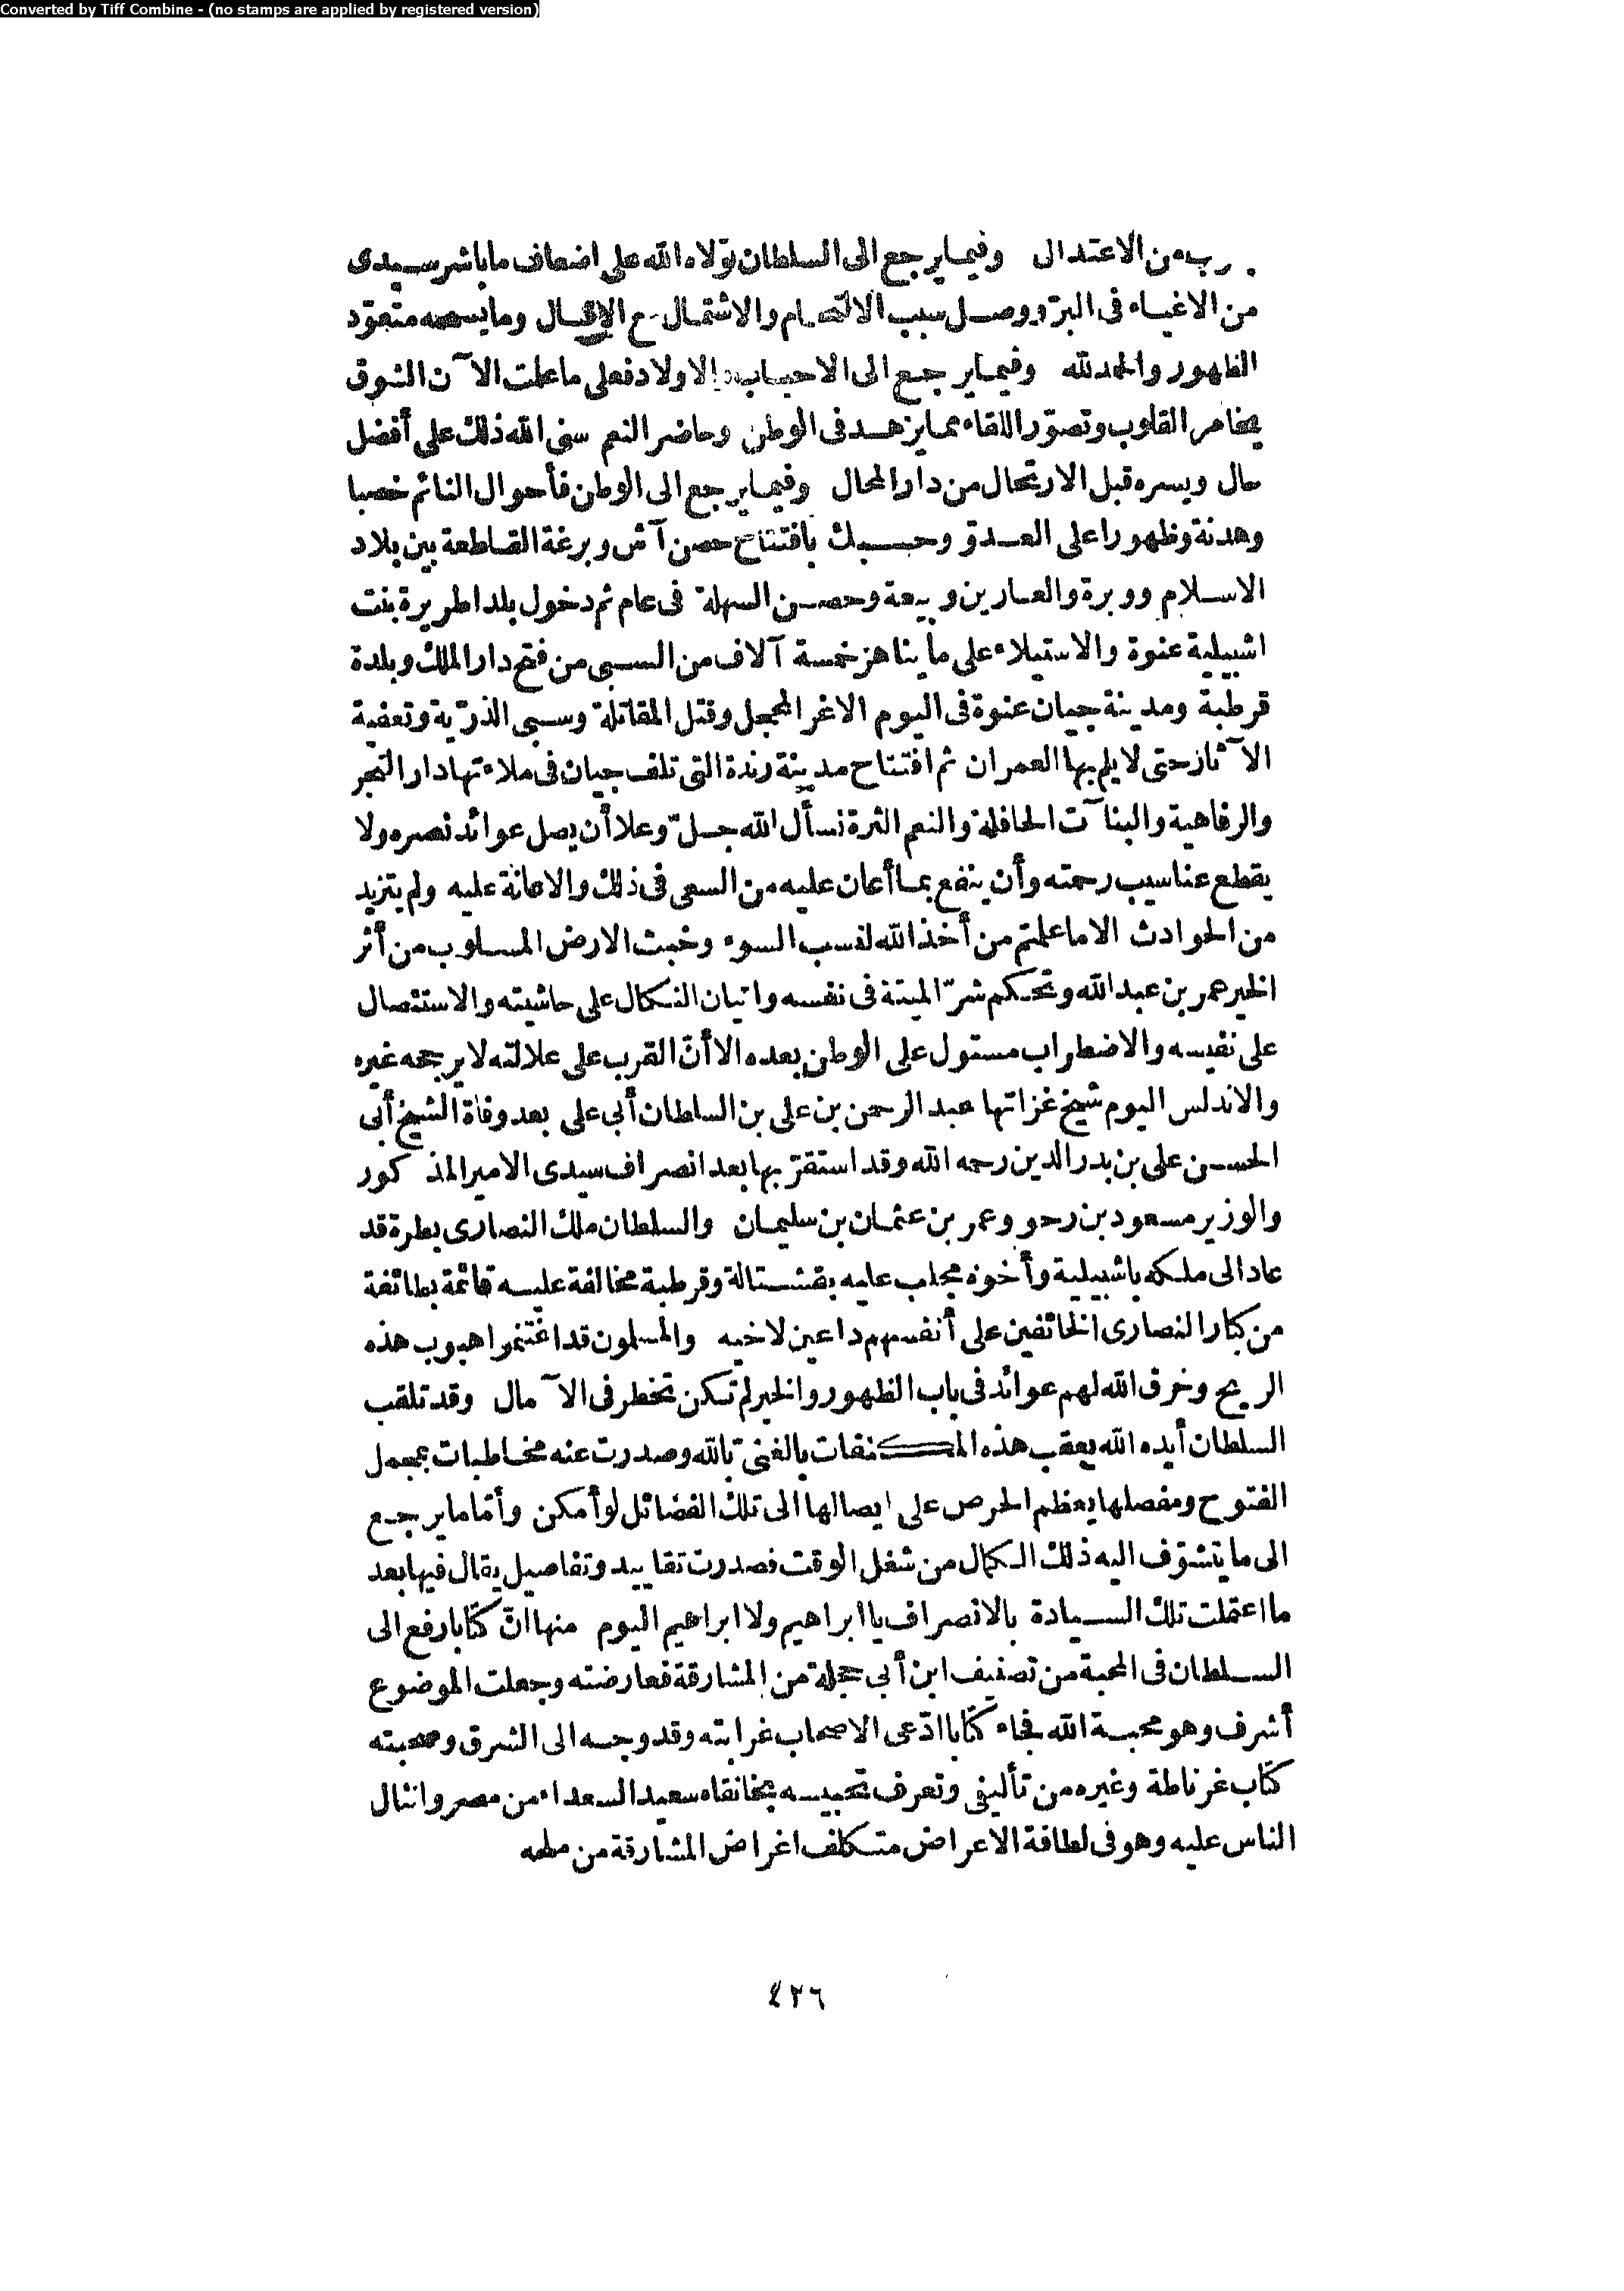 Converted by Tiff Combine - (no stamps are applied by registered version)
من الاعتدال وفيما يرجع الى السلطان تولاه الله على اضعاف ما باشر سيدى
من الاغياء فى البر ووصل سبب الالتحام والاشتمال مع الاقبال وما ينسحبه متعود
الظهور والحمد لله وفيما يرجع الى الاحباب والاولاد فعلى ما علمت الآن الشوق
يخامر القلوب وتصوّر اللقاء مما يزهد فى الوطن وحاضر النعم سنى الله ذلك على أفضل
حال ويسره قبل الارتحال من دار المحال وفيما يرجع الى الوطن فأحوال النائم خصبا
وهدنة وظهورا على العدوّ وحسبك بافتتاح حصن آش وبرغة القاطعة بين بلاد
الاسلام ووبرة والعارين وبيغة وحصن السهلة فى عام ثم دخول بلد اطريرة بنت
اشبيلية عنوة والاستيلاء على ما يناهز خمسة آلاف من السبى من فتح دار الملك وبلدة
قرطبة ومدينة جيان عنوة فى اليوم الاغر المحجل وقتل المقاتلة وسبى الذرّية وتعفية
الآثار حتى لا يلم بها العمران ثم افتتاح مدينة رندة التى تلف جيان فى ملاءتها دار التجر
والرفاهية والبنآت الحافلة والنعم الثرة نسأل الله جلّ وعلا أن يصل عوائد نصره ولا
يقطع عنا سبب رحمته وأن ينفع بما أعان عليه من السعى فى ذلك والاعانة عليه ولم يتزيد
من الحوادث الا ما علمتم من أخذ الله لنسب السوء وخبث الارض المسلوب من أثر
الخير عمر بن عبد الله وتحكم شرّ الميتة فى نفسه واتيان النكال على حاشيته والاستئصال
على نفيسه والاضطراب مستول على الوطن بعده الا أنّ القرب على علالته لا يرجحه غيره
والاندلس اليوم شيخ غزاتها عبد الرحمن بن على بن السلطان أبى على بعد وفاة الشيخ أبى
الحسن على بن بدر الدين رحمه الله وقد استقرّ بها بعد انصراف سيدى الامير المذكور
والوزير مسعود بن رحو وعمر بن عثمان بن سليمان والسلطان ملك النصارى بطرة قد
عاد الى ملكه باشبيلية وأخوه مجلب عليه بقشتالة وقرطبة مخالفة عليه قائمة بطائفة
من كبار النصارى الخائفين على أنفسهم داعين لاخيه والمسلمون قد اغتنموا هبوب هذه
الريح وخرق الله لهم عوائد فى باب الظهور والخير لم تكن تخطر فى الآمال وقد تلقب
السلطان أيده الله بعقب هذه المكنفات بالغنىّ بالله وصدرت عنه مخاطبات بمجمل
الفتوح ومفصلها يعظم الحرص على ايصالها الى تلك الفضائل لو أمكن وأمّا ما يرجع
الى ما يتشوّف اليه ذلك الكمال من شغل الوقت فصدرت تقاييد وتفاصيل يقال فيها بعد
ما اعتملت تلك السيادة بالانصراف يا ابراهيم ولا ابراهيم اليوم منها انّ كتابا رفع الى
السلطان فى المحبة من تصنيف ابن أبى حجلة من المشارقة فعارضته وجعلت الموضوع
أشرف وهو محبة الله فجاء كتابا ادّعى الاصحاب غرابته وقد وجه الى الشرق وصحبته
كتاب غرناطة وغيره من تأليفى وتعرف تحبيسه بخانقاه سعيد السعداء من مصر وانثال
الناس عليه وهو فى لطافة الاعراض متكلف اغراض المشارقة من ملحه
٤٢٦